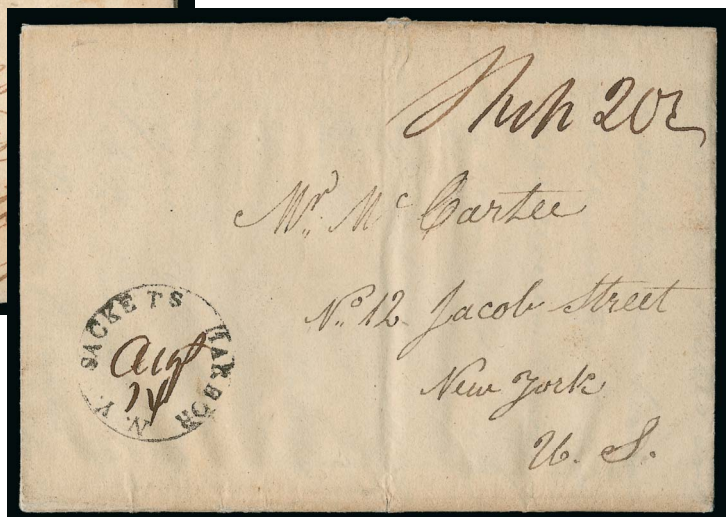 Ship 20½
Mr. Mc Cartee
No. 12 Jacob Street
New York
U. S.
SACKETS HARBOR N.Y.
Augt
14